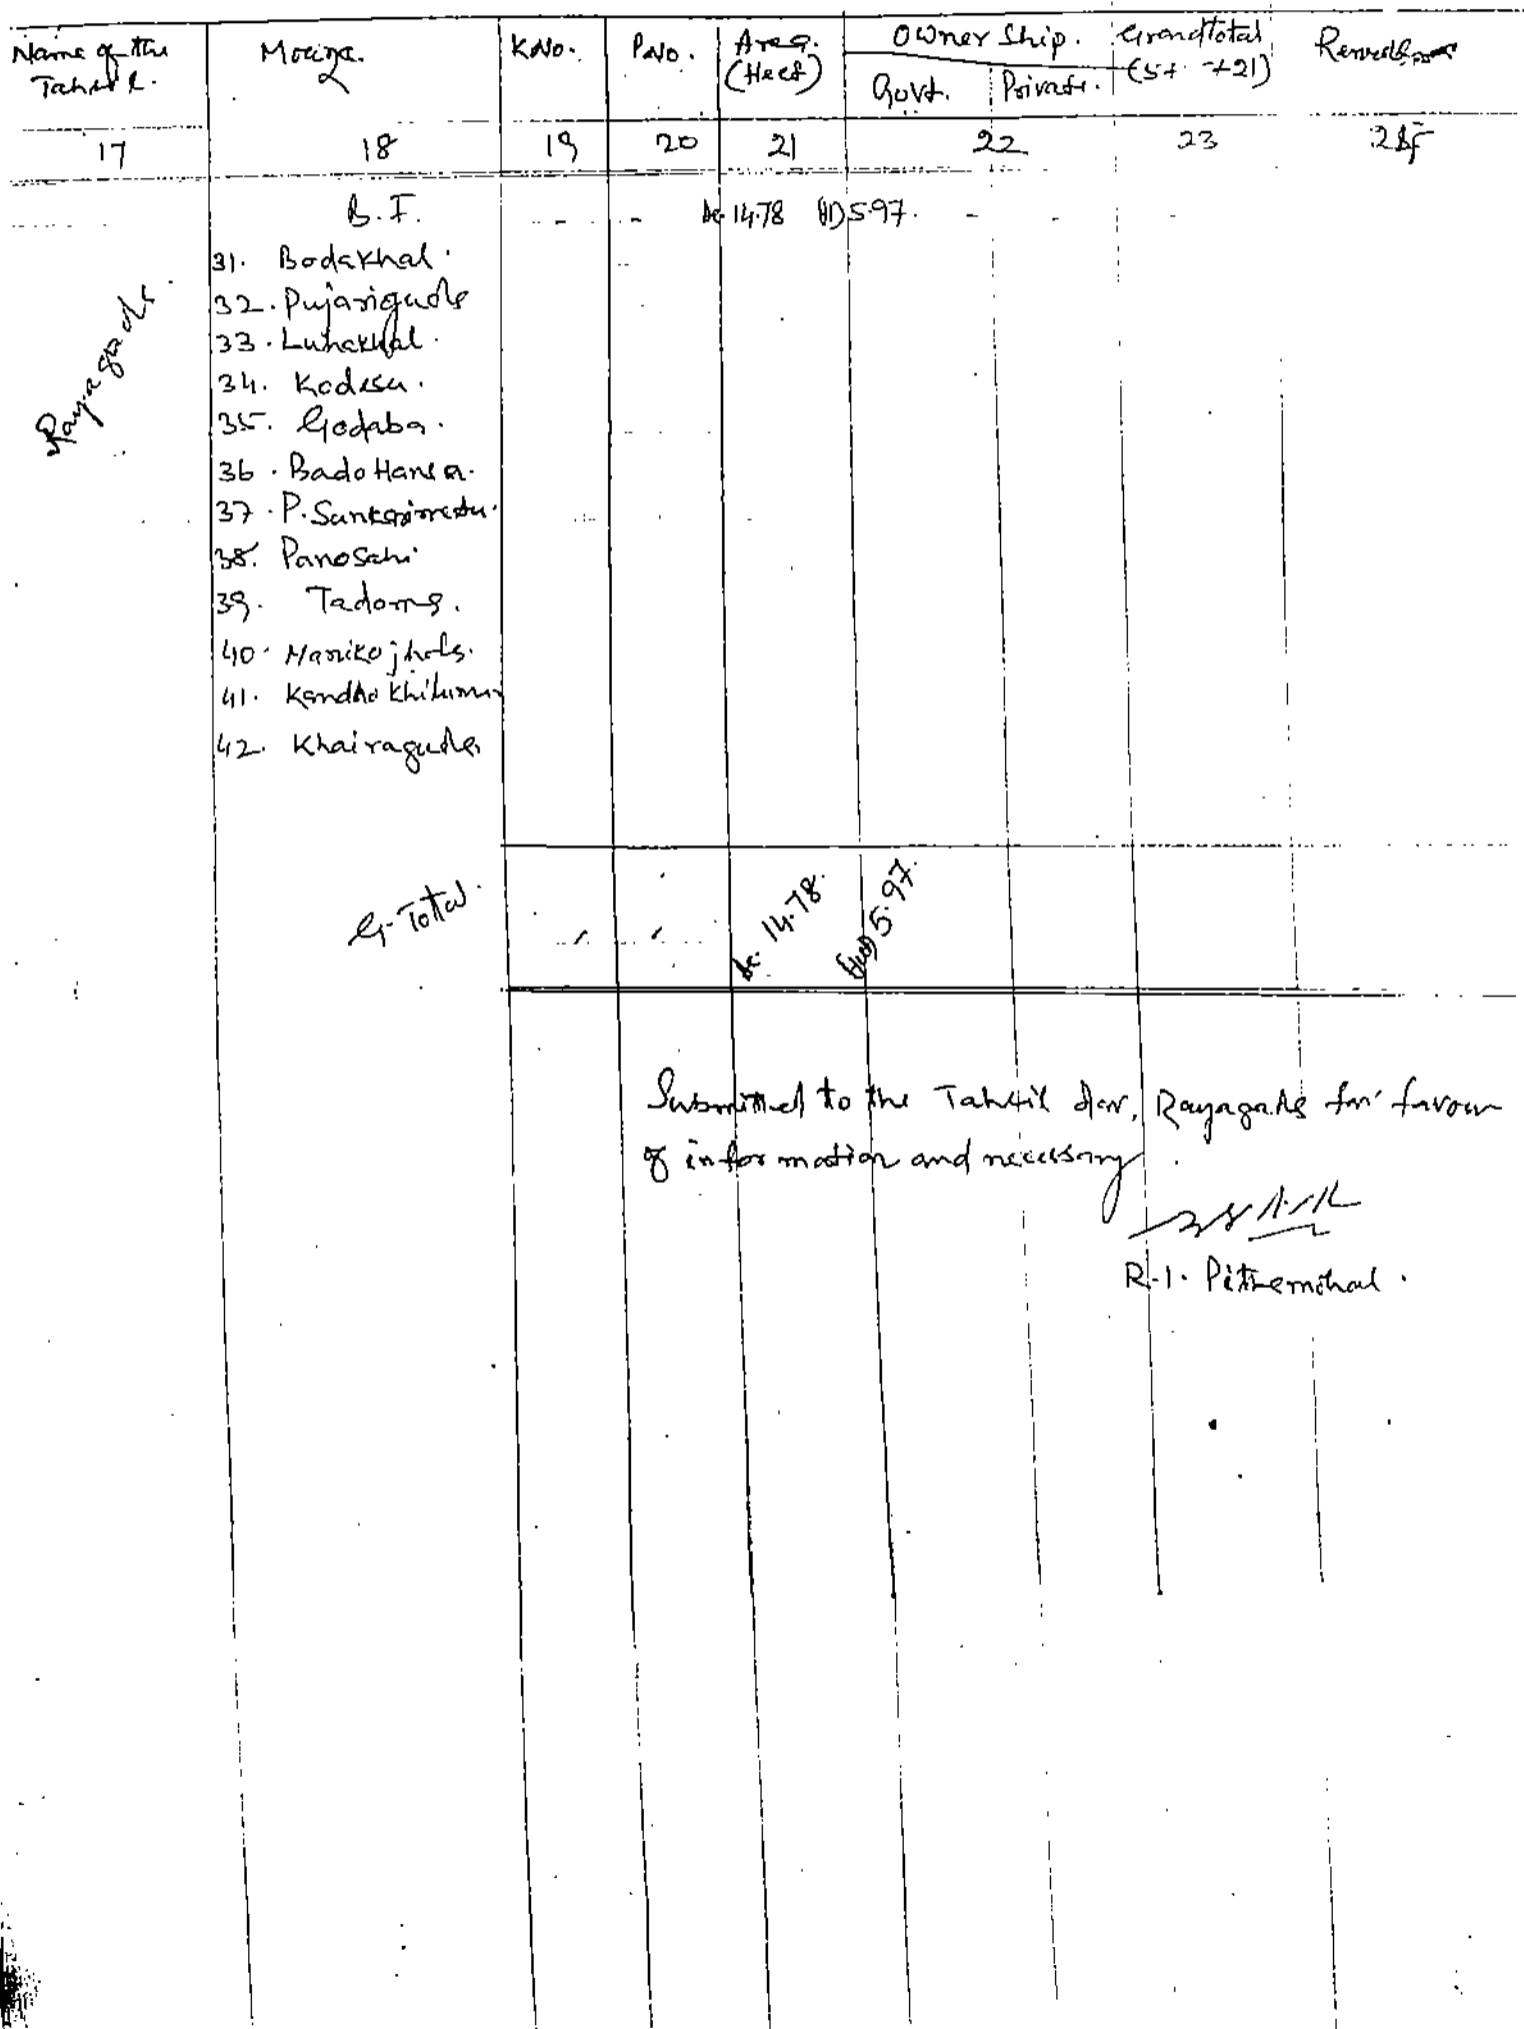 Name of the Tahsil. Mouza. K.No. P.No. Area. (Hect) Owner Ship. Grandtotal (5+ +21)
Govt. Private.
17 18 19 20 21 22 23 24
B.F. Ac 14.78 (H) 5.97. - - -
Rayagada.
31. Bodakhal.
32. Pujariguda
33. Lunakhal.
34. Kodesu.
35. Godaba.
36. Bado Hansa.
37. P.
38. Panosahi
39. Tadoma.
40. Maniko jhola.
41. Kandho
42. Khairaguda
G-Total. Ac. 14.78. 5.97.
Submitted to the Tahsil dar, Rayagada for favour
of information and necessary
R.I.